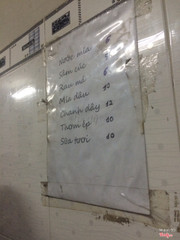 Nước mía
Sâm cúc 8
Rau má
Mía dâu 10
Chanh dây 12
Thơm ép 10
Sữa tươi 10